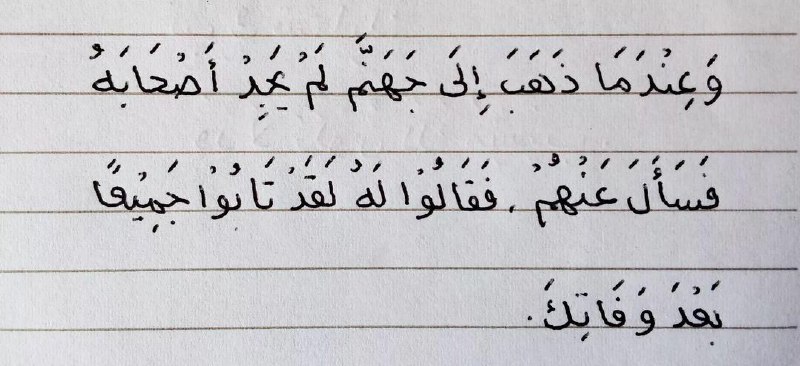 وَعِنْدَمَا ذَهَبَ إِلَى جَهَنَّم لَمْ يَجِدْ أَصْحَابَهُ
فَسَأَلَ عَنْهُمْ. فَقَالُوْا لَهُ لَقَدْ تَابُوْا جَمِيْعًا
بَعْدَ وَفَاتِكَ.